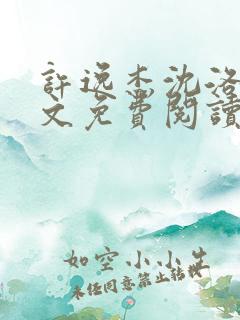 許逸杰沈洛
文免費閱讀
如空小小生
未经同意禁止转载